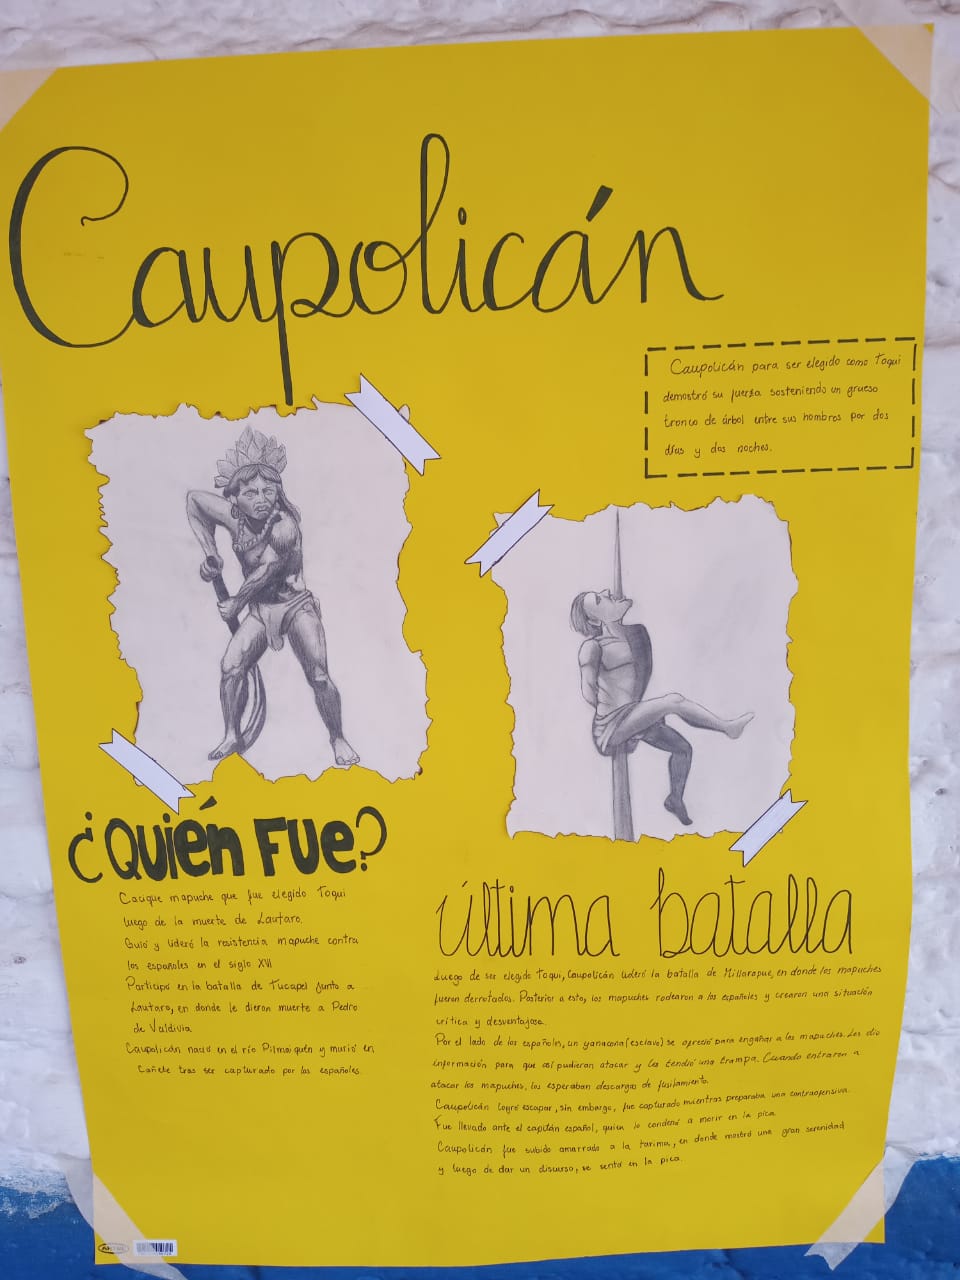 Caupolicán
Caupolicán para ser elegido como toqui
demostró su fuerza sosteniendo un grueso
tronco de árbol entre sus hombros por dos
días y dos noches.
¿Quién fue?
Cacique mapuche que fue elegido Toqui
luego de la muerte de Lautaro.
Guió y lideró la resistencia mapuche contra
los españoles en el siglo XVI
Participó en la batalla de Tucapel junto a
Lautaro, en donde le dieron muerte a Pedro
de Valdivia
Caupolicán nació en el río Pilmaiquén y murió en
Cañete tras ser capturado por los españoles.
Última batalla
Luego de ser elegido toqui, Caupolicán lideró la batalla de Millarapue, en donde los mapuches
fueron derrotados. Posterior a esto, los mapuches rodearon a los españoles y crearon una situación
crítica y desventajosa.
Por el lado de los españoles, un yanacona (esclavo) se ofreció para engañar a los mapuches. Les dio
información para que así pudieran atacar y les tendió una trampa. Cuando entraron a
atacar los mapuches, los esperaban descargas de fusilamiento.
Caupolicán logró escapar, sin embargo, fue capturado mientras preparaba una contraofensiva.
Fue llevado ante el capitán español, quien lo condenó a morir en la pica.
Caupolicán fue subido amarrado a la tarima, en donde mostró una gran serenidad
y luego de dar un discurso, se sentó en la pica.